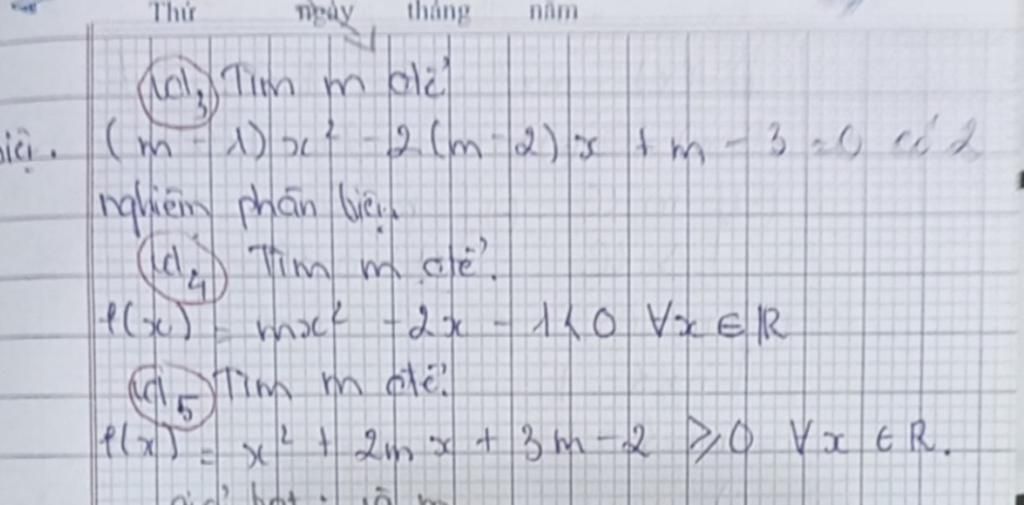 Thứ ngày tháng năm
Vd3 Tìm m để
(m - 1)x² - 2(m-2)x + m - 3 = 0 có 2
nghiệm phân biệt.
Vd4 Tìm m để.
f(x) = mx² - 2x - 1 < 0 ∀x ∈ ℝ
Vd5 Tìm m để.
f(x) = x² + 2mx + 3m - 2 ⩾ 0 ∀x ∈ ℝ.